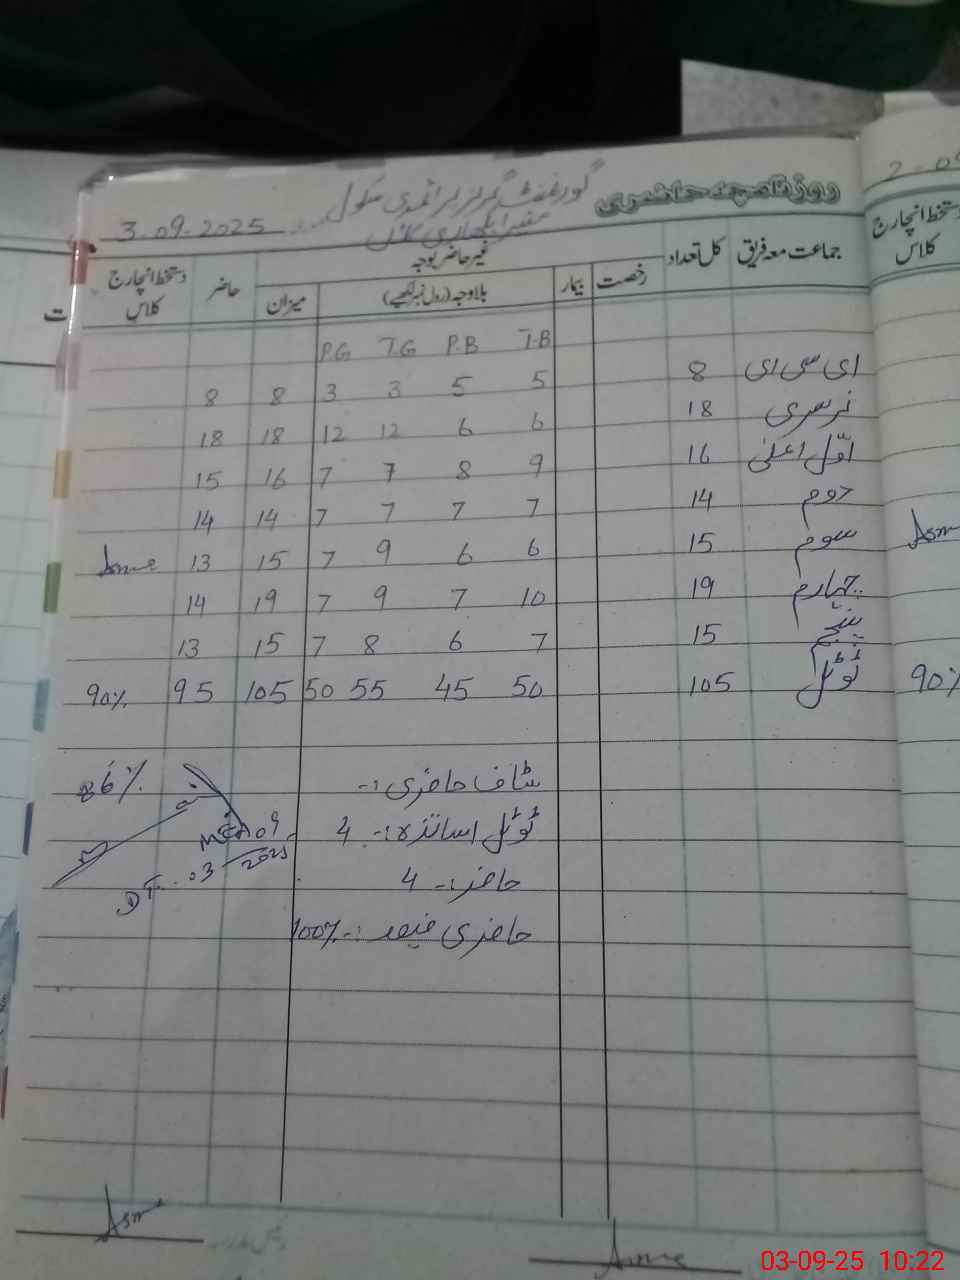 روزنامچہ حاضری گورنمنٹ گرلز پرائمری سکول 3-09-2025
جماعت معہ فریق کل تعداد غیر حاضر بوجہ حاضر دستخط انچارج کلاس
رخصت بیمار بلاوجہ (رول نمبر لکھیے) میزان
T.B P.B T.G P.G
ای سی ای 8 5 5 3 3 8 8
نرسری 18 6 6 12 12 18 18
اوّل اعلیٰ 16 9 8 7 7 16 15
دوم 14 7 7 7 7 14 14
سوم 15 6 6 9 7 15 13 Asme
چہارم 19 10 7 9 7 19 14
پنجم 15 7 6 8 7 15 13
ٹوٹل 105 50 45 55 50 105 95 90%
سٹاف حاضری :-
86%
ٹوٹل اساتذہ :- 4
MEA
حاضر :- 4
DT. 03 09 2025
حاضری فیصد :- 100%
Asme
رئیس مدرسہ
Asme
2-09
دستخط انچارج
کلاس
Asm
90%
ت
03-09-25 10:22